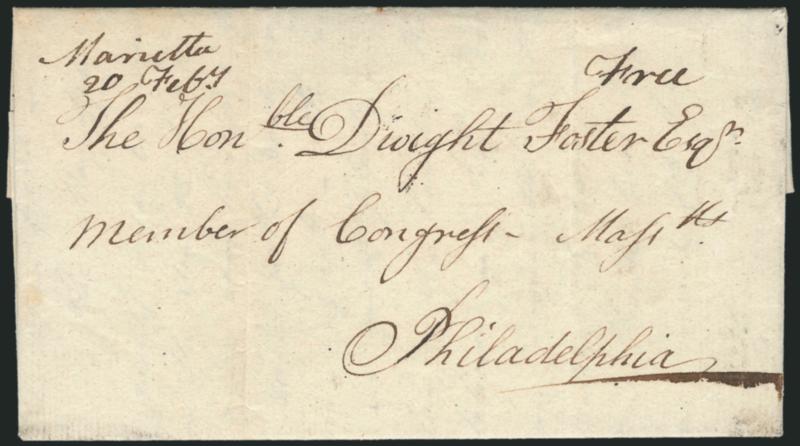 Marietta
20 Feby
Free
The Honble. Dwight Foster Esqr.
Member of Congress - Massts.
Philadelphia